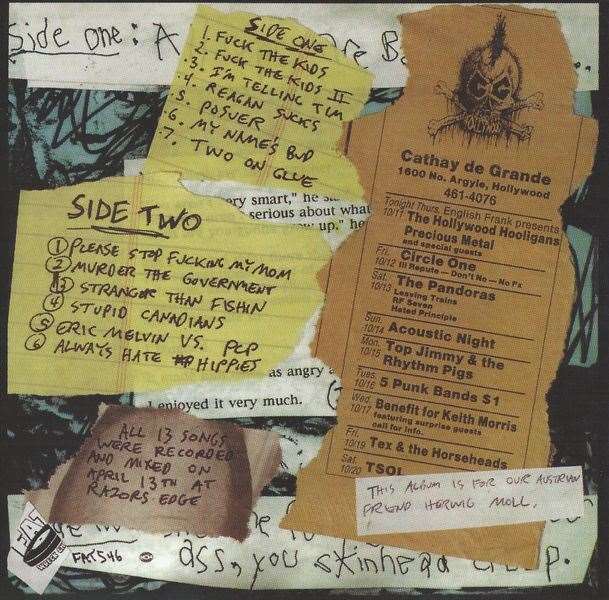 Side one: A
SIDE ONE
1. FUCK THE KIDS
2. FUCK THE KIDS II
3. I'M TELLING TIM
4. REAGAN SUCKS
5. POSUER
6. MY NAME'S BUD
7. TWO ON GLUE
SIDE TWO
① PLEASE STOP FUCKING MY MOM
② MURDER THE GOVERNMENT
③ STRANGER THAN FISHIN
④ STUPID CANADIANS
⑤ ERIC MELVIN VS. PCP
⑥ ALWAYS HATE HIPPIES
ery smart," he
serious about what
up," he
as angry a
enjoyed it very much.
ALL 13 SONGS
WERE RECORDED
AND MIXED ON
APRIL 13TH AT
RAZORS EDGE
FAT546
Cathay de Grande
1600 No. Argyle, Hollywood
461-4076
Tonight Thurs. English Frank presents
10/11 The Hollywood Hooligans
Precious Metal
and special guests
Fri. 10/12 Circle One
Ill Repute — Don't No — No F's
Sat. 10/13 The Pandoras
Leaving Trains
RF Seven
Hated Principle
Sun. 10/14 Acoustic Night
Mon. 10/15 Top Jimmy & the
Rhythm Pigs
Tues. 10/16 5 Punk Bands $1
Wed. 10/17 Benefit for Keith Morris
featuring surprise guests
call for info.
Fri. 10/19 Tex & the Horseheads
Sat. 10/20 TSOL
THIS ALBUM IS FOR OUR AUSTRIAN
FRIEND HERWIG MOLL.
ass, you skinhead